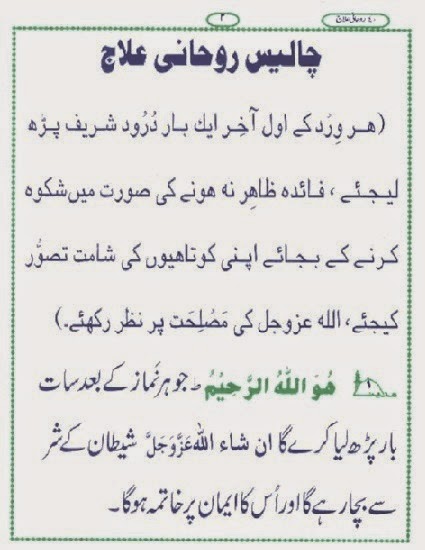 ۴۰ روحانی علاج
۲
چالیس روحانی علاج
(ھر وِرد کے اول آخِر ایك بار دُرُود شریف پڑھ
لیجئے ، فائدہ ظاھِر نہ ھونے کی صورت میں شکوہ
کرنے کے بجائے اپنی کوتاھیوں کی شامت تصوُّر
کیجئے، اللہ عزوجل کی مَصْلِحَت پر نظر رکھئے۔)
۱ ھُوَ اللہُ الرَّحِیْمُ - جو ہر نَماز کے بعد سات
بار پڑھ لیا کرے گا ان شاء اللہ عَزَّوَجَلَّ شیطان کے شر
سے بچا رہے گا اور اُس کا ایمان پر خاتمہ ہو گا۔